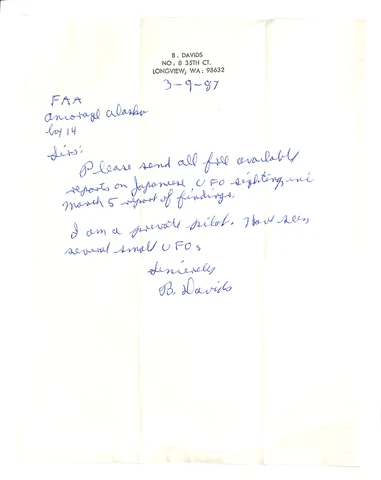 B. DAVIDS
NO. 8 35TH CT.
LONGVIEW, WA. 98632
3-9-87
FAA
Ancorage Alaska
box 14
Sirs:
Please send all free available
reports on Japanese UFO sighting, inc
March 5 report of findings.
I am a private pilot. Have seen
several small UFOs
Sincerely
B. Davids